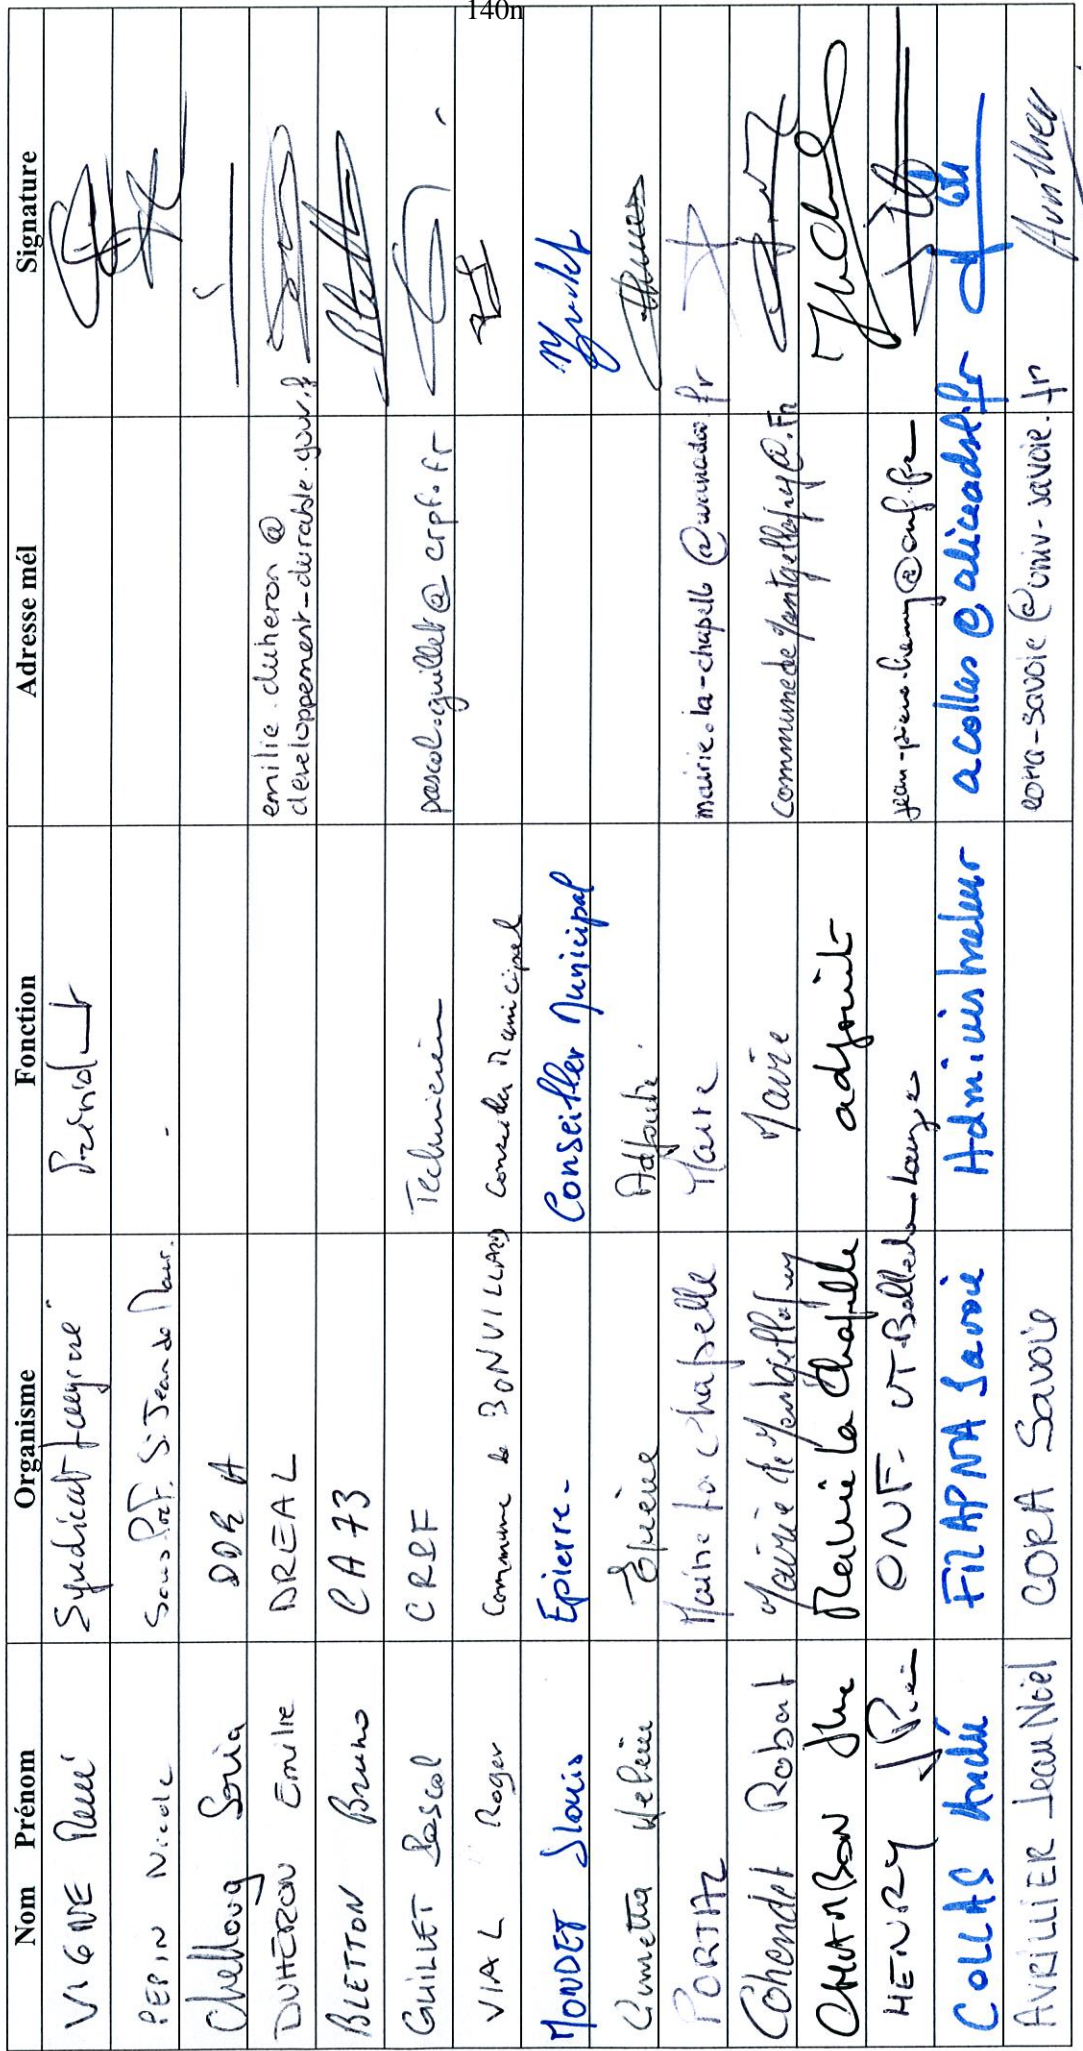 140n
Nom Prénom Organisme Fonction Adresse mél Signature
VIGNE René Syndicat Président
PEPIN Nicole Sous Préf. St Jean de Maur.
Chelloug Soria DDEA
DUHERON Emilie DREAL emilie.duheron@
developpement-durable.gouv.f
BLETTON Bruno CA 73
GUILLET Pascal CRPF Technicien pascal.guillet@crpf.fr
VIAL Roger Commune de BONVILLARD Conseiller Municipal
MONDET JLouis Epierre- Conseiller Municipal
Helène Epierre Adjointe.
PORTAZ Mairie la Chapelle Maire mairie.la-chapelle@wanadoo.fr
Cohendet Robert Mairie de Montgellafrey Maire communedemontgellafrey@.Fr
CHAMBON Mairie la Chapelle adjoint
HENRY JPierre ONF- UT. jean-pierre.henry@onf.fr
COLLAS André FRAPNA Savoie Administrateur acollas@aliceadsl.fr
AVRILLIER Jean Noël CORA Savoie cora-savoie@univ-savoie.fr